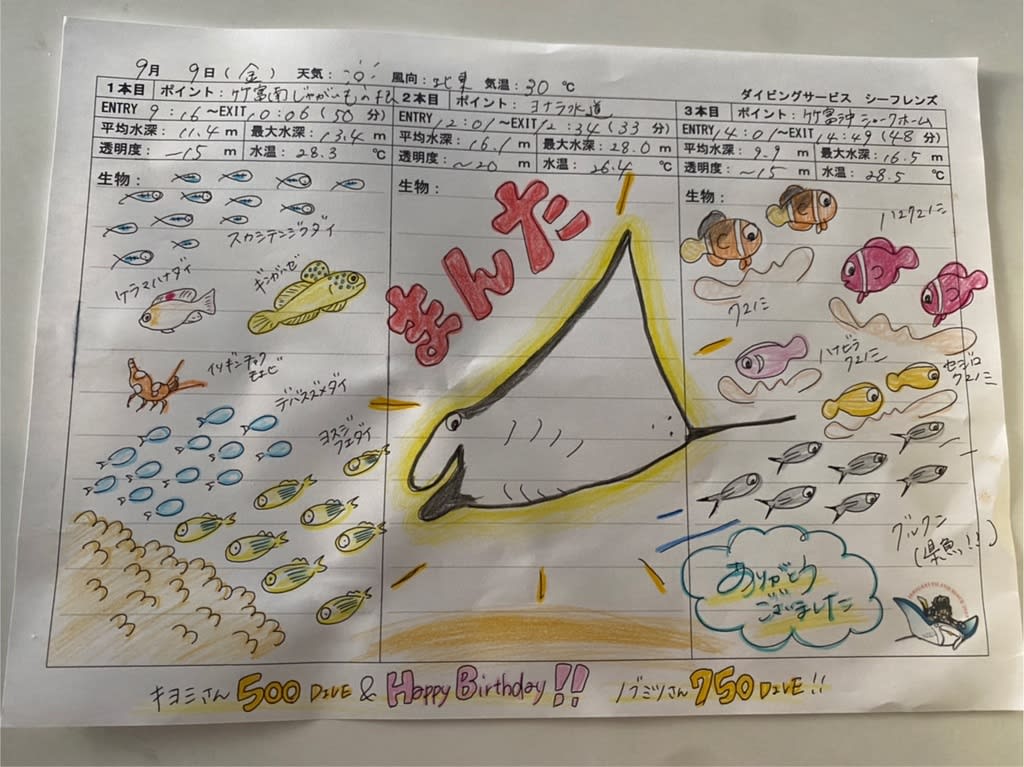 9月 9日(金) 天気: 風向:北東 気温:30℃
ダイビングサービス シーフレンズ
1本目 ポイント:竹富南じゃがいもの
ENTRY 9:16~EXIT 10:06(50分)
平均水深:11.4m 最大水深:13.4m
透明度:~15m 水温:28.3℃
生物:
スカシテンジクダイ
ケラマハナダイ
ギンガハゼ
イソギンチャク
モエビ
デバスズメダイ
ヨスジ
フエダイ
2本目 ポイント:ヨナラ水道
ENTRY 12:01~EXIT 12:34(33分)
平均水深:16.1m 最大水深:28.0m
透明度:~20m 水温:26.4℃
生物:
まんた
3本目 ポイント:竹富沖シャークホーム
ENTRY 14:01~EXIT 14:49(48分)
平均水深:9.9m 最大水深:16.5m
透明度:~15m 水温:28.5℃
生物:
ハマクマノミ
クマノミ
ハナビラ
クマノミ
セジロ
クマノミ
グルクン
(県魚!!)
ありがとう
ございました
キヨミさん 500 DIVE & Happy Birthday!! ノブミツさん 750 DIVE!!